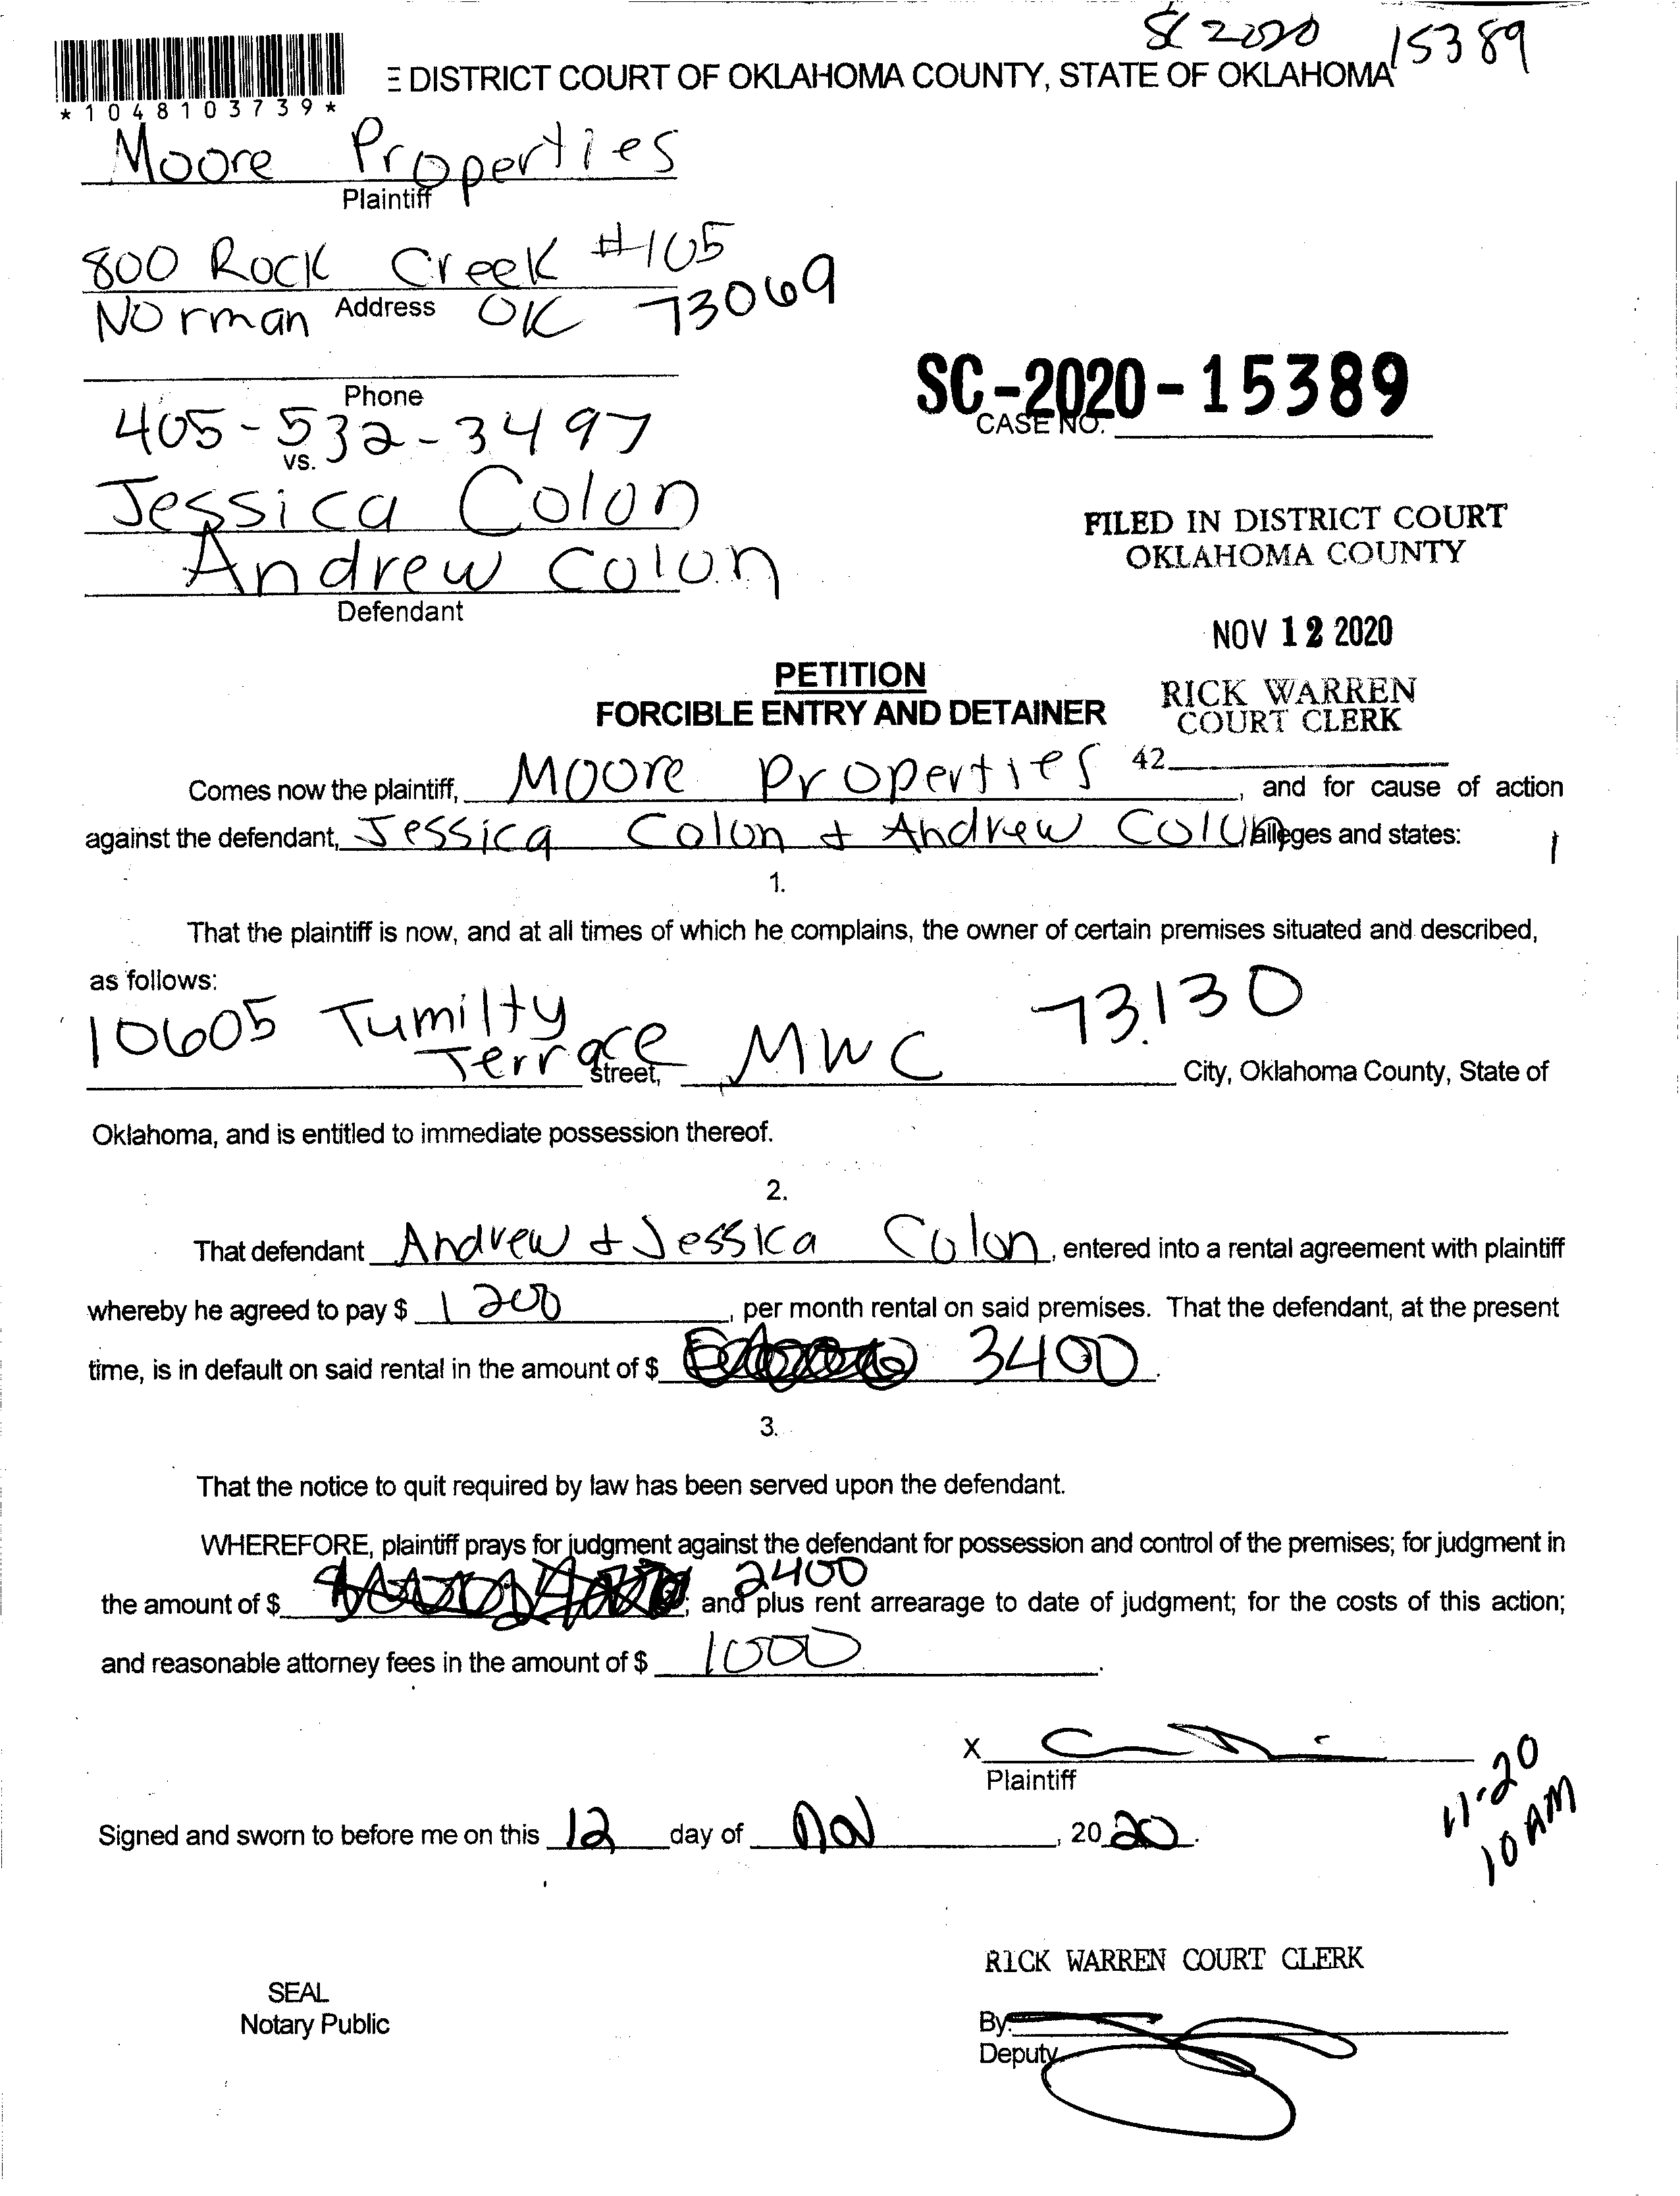 SC 2020 15389
E DISTRICT COURT OF OKLAHOMA COUNTY, STATE OF OKLAHOMA
*1048103739*
Moore Properties
Plaintiff
800 Rock Creek #105
Address
Norman OK 73069
Phone
405-532-3497
SC-2020-15389
CASE NO.
vs.
Jessica Colon
Andrew Colon
Defendant
FILED IN DISTRICT COURT
OKLAHOMA COUNTY
NOV 12 2020
RICK WARREN
COURT CLERK
42
PETITION
FORCIBLE ENTRY AND DETAINER
Comes now the plaintiff, Moore Properties, and for cause of action
against the defendant, Jessica Colon + Andrew Colon alleges and states:
1.
That the plaintiff is now, and at all times of which he complains, the owner of certain premises situated and described,
as follows:
10605 Tumilty Terrace street, MWC 73130 City, Oklahoma County, State of
Oklahoma, and is entitled to immediate possession thereof.
2.
That defendant Andrew + Jessica Colon, entered into a rental agreement with plaintiff
whereby he agreed to pay $ 1200, per month rental on said premises. That the defendant, at the present
time, is in default on said rental in the amount of $ 3400.
3.
That the notice to quit required by law has been served upon the defendant.
WHEREFORE, plaintiff prays for judgment against the defendant for possession and control of the premises; for judgment in
the amount of $ 2400; and plus rent arrearage to date of judgment; for the costs of this action;
and reasonable attorney fees in the amount of $ 1000.
X
Plaintiff
11-20
10 AM
Signed and sworn to before me on this 12 day of Nov, 2020.
RICK WARREN COURT CLERK
SEAL
Notary Public
By:
Deputy